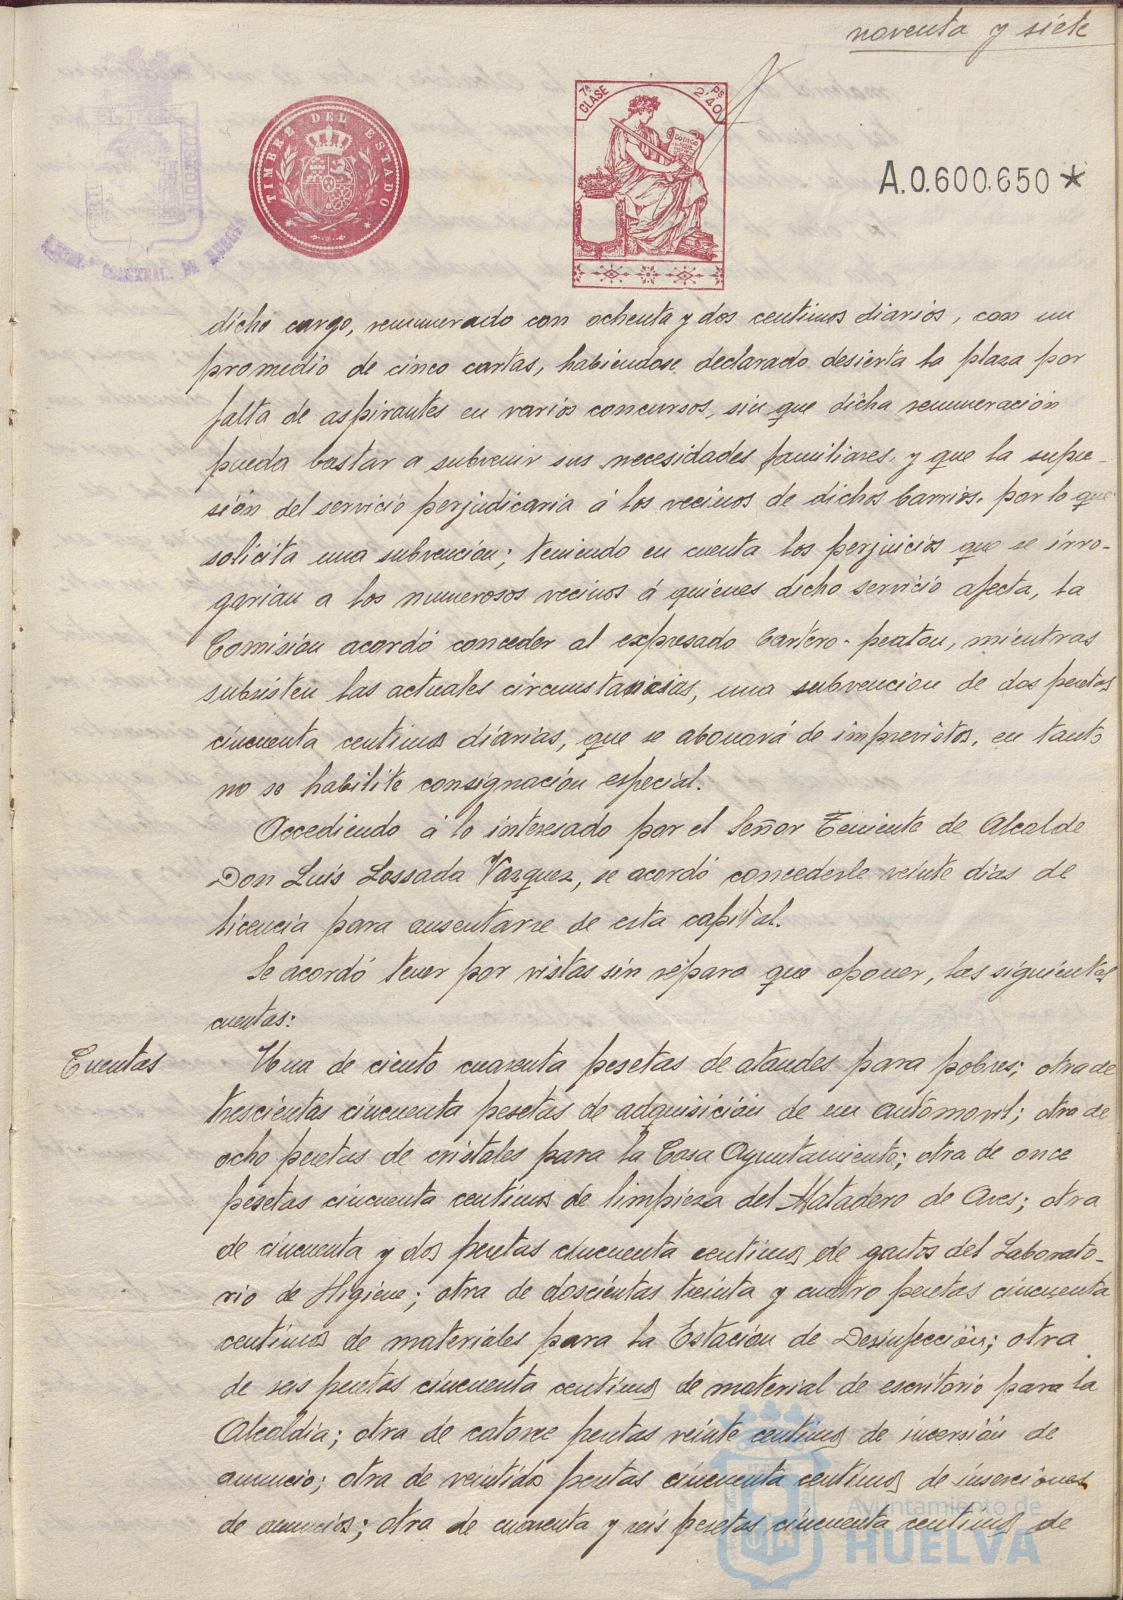 noventa y siete
TIMBRE DEL ESTADO
7ª CLASE
Ps 2'40
CODIGO
A.0.600.650 *
dicho cargo, remunerado con ochenta y dos centimos diarios, con un
promedio de cinco cartas, habiendose declarado desierta la plaza por
falta de aspirantes en varios concursos, sin que dicha remuneración
pueda bastar a subvenir sus necesidades familiares, y que la supre-
sión del servicio perjudicaria á los vecinos de dichos barrios, por lo que
solicita una subvención; teniendo en cuenta los perjuicios que se irro-
garian a los numerosos vecinos á quienes dicho servicio afecta, la
Comisión acordó conceder al expresado Cartero-peaton, mientras
subsisten las actuales circunstancias, una subvencion de dos pesetas
cincuenta centimos diarias, que se abonará de imprevistos, en tanto
no se habilite consignación especial.
Accediendo á lo interesado por el Señor Teniente de Alcalde
Don Luis Lossada Vazquez, se acordó concederle veinte dias de
licencia para ausentarse de esta capital.
Se acordó tener por vistas sin reparo que oponer, las siguientes
cuentas:
Cuentas
Una de ciento cuarenta pesetas de ataudes para pobres; otra de
trescientas cincuenta pesetas de adquisición de un automovil; otra de
ocho pesetas de cristales para la Casa Ayuntamiento; otra de once
pesetas cincuenta centimos de limpieza del Matadero de Aves; otra
de cincuenta y dos pesetas cincuenta centimos de gastos del Laborato-
rio de Higiene; otra de doscientas treinta y cuatro pesetas cincuenta
centimos de materiales para la Estación de Desinfección; otra
de seis pesetas cincuenta centimos de material de escritorio para la
Alcaldia; otra de catorce pesetas veinte centimos de incersión de
anuncio; otra de veintidos pesetas cincuenta centimos de inserciones
de anuncios; otra de cuarenta y seis pesetas cincuenta centimos de
Ayuntamiento de
HUELVA